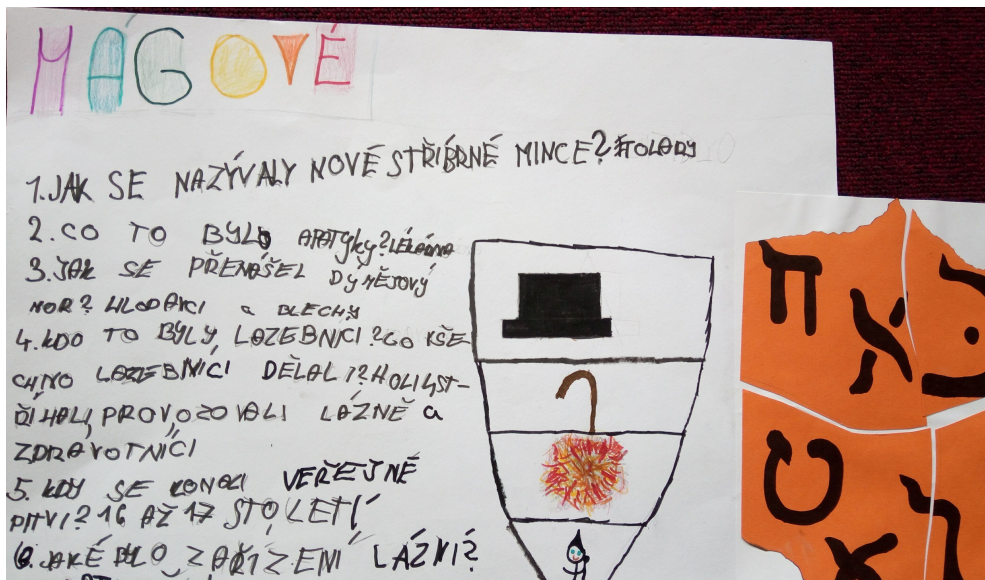 MÁGOVÉ
1. JAK SE NAZÝVALY NOVÉ STŘÍBRNÉ MINCE? TOLARY
2. CO TO BYLO APATYky? LÉKÁRNA
3. JAK SE PŘENÁŠEL DÝMĚJOVÝ
MOR? HLODAVCI a BLECHY
4. KDO TO BYLY LAZEBNÍCI? CO VŠE
CHNO LAZEBNÍCI DĚLALI? HOLILI, ST-
ŘÍHALI, PROVOZOVALI LÁZNĚ a
ZDRAVOTNÍCI
5. KDY SE KONALI VEŘEJNÉ
PITVI? 16 AŽ 17 STOLETÍ
6. JAKÉ BYLO ZAŘÍZENÍ LÁZNÍ?
ח א
ט